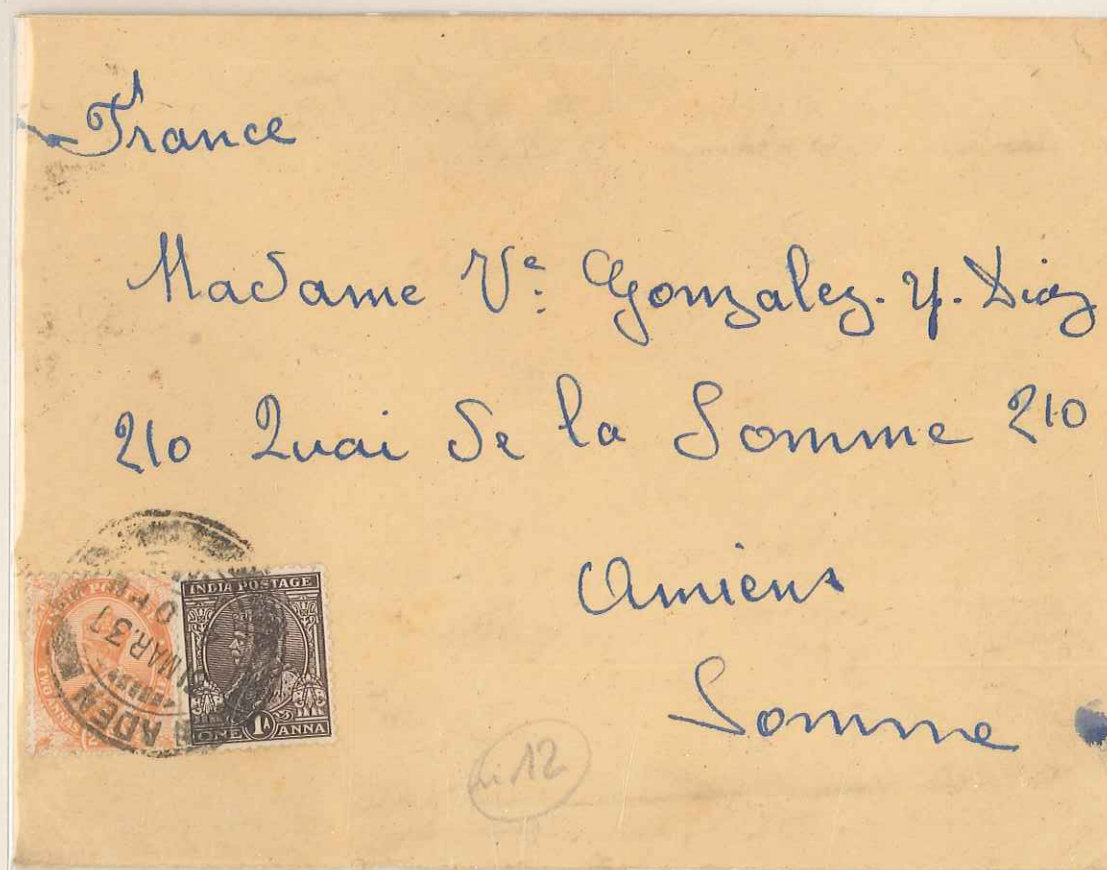 France
Madame Ve: Gonzalez. y. Diaz
210 Quai de la Somme 210
Amiens
Somme
INDIA POSTAGE
1A
ONE ANNA
TWO
ADEN
MAR.37
12